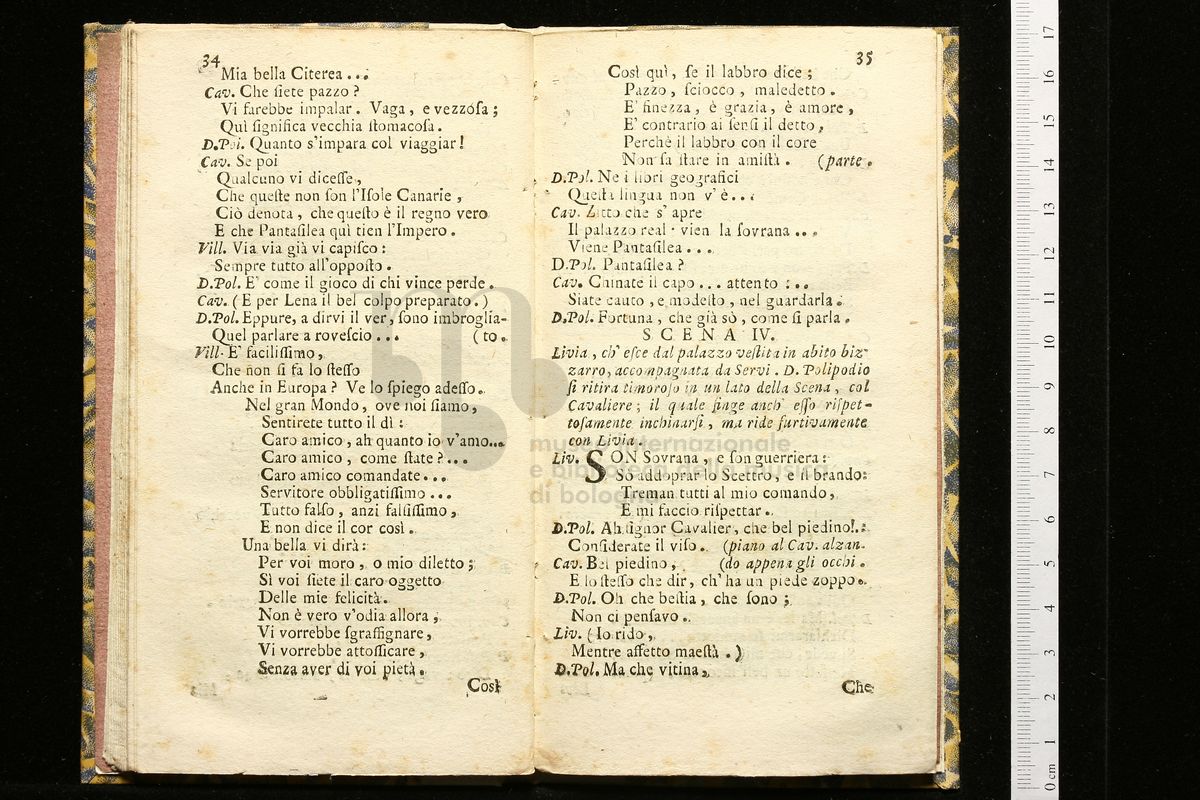 34
Mia bella Citerea...
Cav. Che ſiete pazzo?
Vi farebbe impalar. Vaga, e vezzoſa;
Quì ſignifica vecchia ſtomacoſa.
D.Pol. Quanto s'impara col viaggiar!
Cav. Se poi
Qualcuno vi diceſſe,
Che queſte non ſon l'Iſole Canarie,
Ciò denota, che queſto è il regno vero
E che Pantaſilea quì tien l'Impero.
Vill. Via via già vi capiſco:
Sempre tutto all'oppoſto.
D.Pol. E' come il gioco di chi vince perde.
Cav. (E per Lena il bel colpo preparato.)
D.Pol. Eppure, a dirvi il ver, ſono imbroglia-
Quel parlare a roveſcio... (to.
Vill. E' faciliſſimo,
Che non ſi fa lo ſteſſo
Anche in Europa? Ve lo ſpiego adeſſo.
Nel gran Mondo, ove noi ſiamo,
Sentirete tutto il dì:
Caro amico, ah quanto io v'amo...
Caro amico, come ſtate?...
Caro amico comandate...
Servitore obbligatiſſimo...
Tutto falſo, anzi falſiſſimo,
E non dice il cor così.
Una bella vi dirà:
Per voi moro, o mio diletto;
Sì voi ſiete il caro oggetto
Delle mie felicità.
Non è vero v'odia allora,
Vi vorrebbe ſgraffignare,
Vi vorrebbe attoſſicare,
Senza aver di voi pietà.
Così
35
Così quì, ſe il labbro dice;
Pazzo, ſciocco, maledetto.
E' finezza, è grazia, è amore,
E' contrario ai ſenſi il detto,
Perchè il labbro con il core
Non ſa ſtare in amiſtà. (parte.
D.Pol. Ne i libri geografici
Queſta lingua non v'è...
Cav. Zitto che s'apre
Il palazzo real: vien la ſovrana...
Viene Pantaſilea...
D.Pol. Pantaſilea?
Cav. Chinate il capo... attento:..
Siate cauto, e modeſto, nel guardarla.
D.Pol. Fortuna, che già sò, come ſi parla.
SCENA IV.
Livia, ch'eſce dal palazzo veſtita in abito biz-
zarro, accompagnata da Servi. D. Polipodio
ſi ritira timoroſo in un lato della Scena, col
Cavaliere; il quale finge anch' eſſo riſpet-
toſamente inchinarſi, ma ride furtivamente
con Livia.
Liv. SON Sovrana, e ſon guerriera:
Sò addoprar lo Scettro, e il brando:
Treman tutti al mio comando,
E mi faccio riſpettar.
D.Pol. Ah ſignor Cavalier, che bel piedino!.:
Conſiderate il viſo. (piano al Cav. alzan-
Cav. Bel piedino, (do appena gli occhi.
E lo ſteſſo che dir, ch'ha un piede zoppo.
D.Pol. Oh che beſtia, che ſono;
Non ci penſavo.
Liv. (Io rido,
Mentre affetto maeſtà.)
D.Pol. Ma che vitina,
Che
museo internazionale
e biblioteca della musica
di bologna
17
16
15
14
13
12
11
10
9
8
7
6
5
4
3
2
1
0 cm